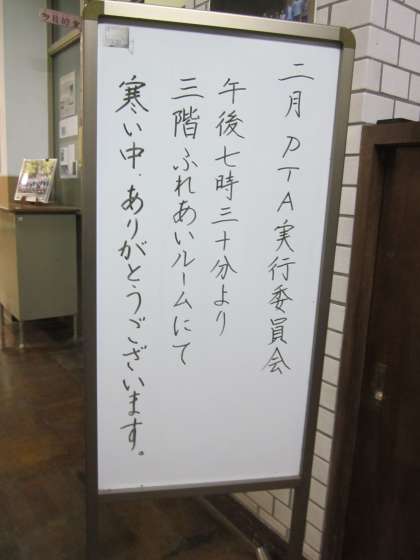 二月 PTA実行委員会
午後七時三十分より
三階ふれあいルームにて
寒い中、ありがとうございます。